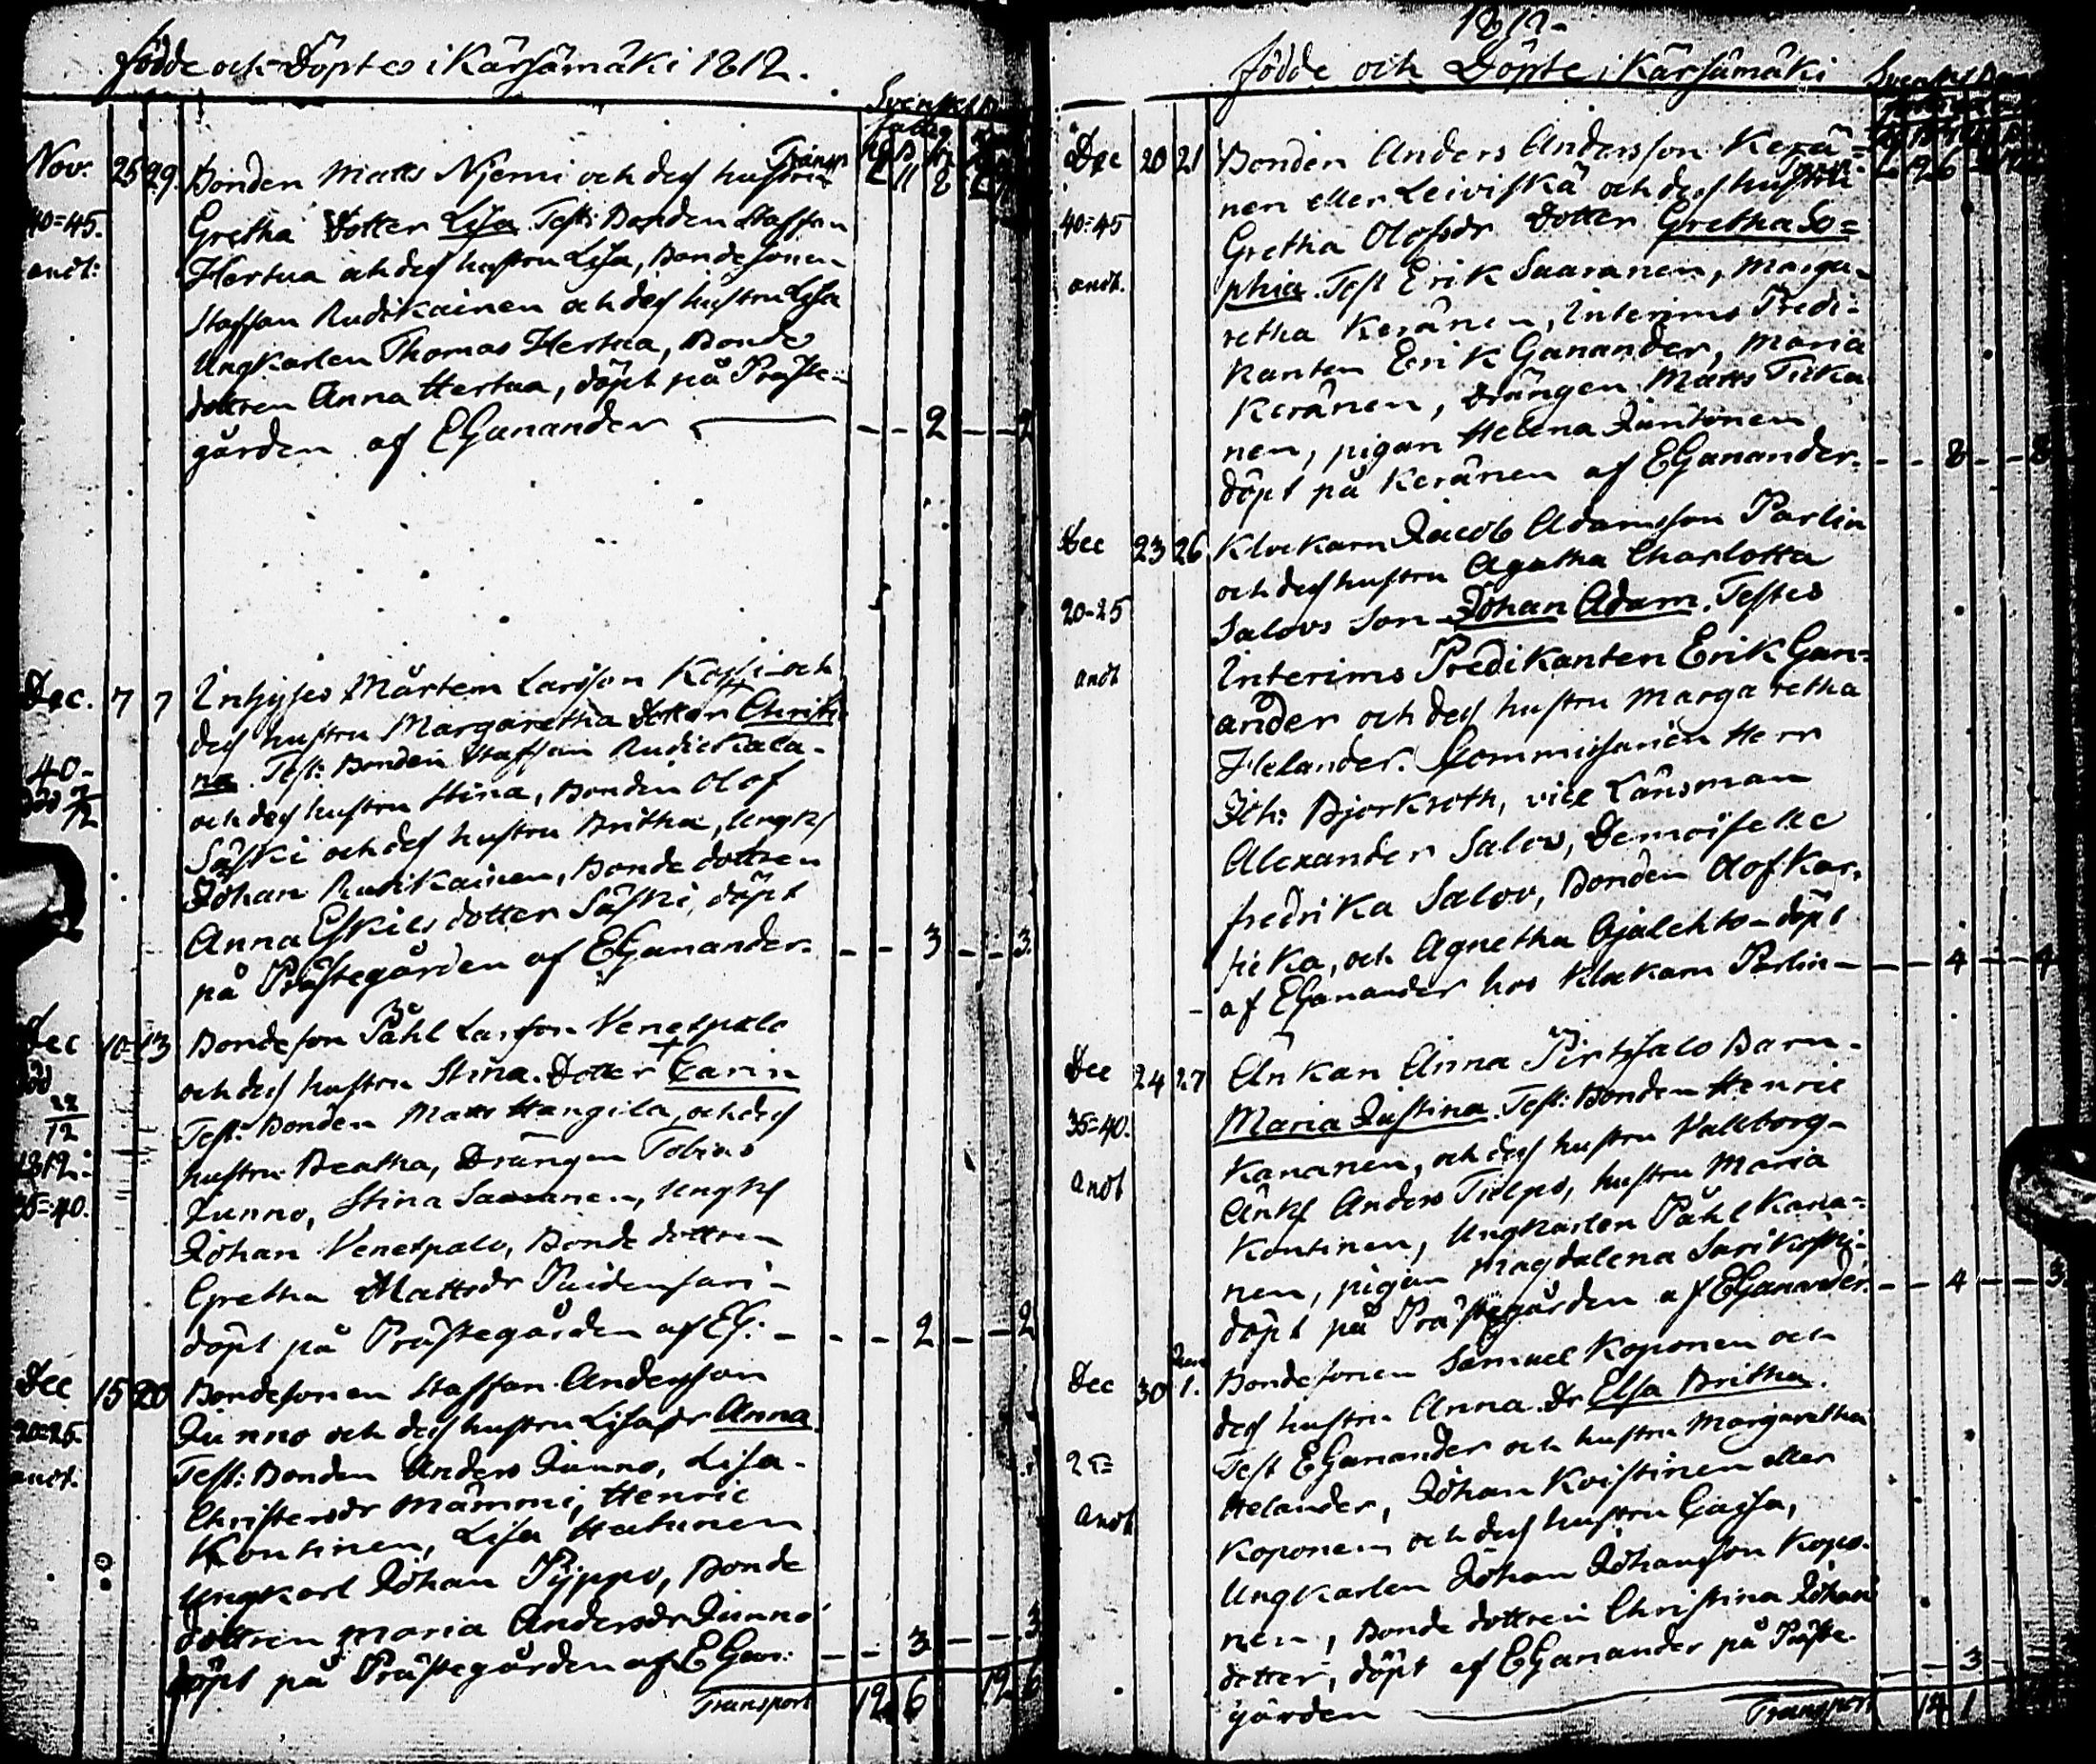 födde och Döptes i Kärsämäki 1812.
Svenskt
Nov. 25 29 Bonden Matts Njemi och dess hustru
40=45. Gretha Dotter Lisa Test: Bonden Staffan
andl: Hertua och dess hustru Lisa, Bondesonen
Staffan Rudikainen och dess hustru Lisa
Ungkarlen Thomas Hertua, Bonde
dottren Anna Hertua, döpt på Präste-
gården af EGanander - - 2 - - 2
Dec. 7 7 Inhyses Mårten Larsson och
dess hustru Margaretha Dotter Christi
40- na. Test: Bonden Staffan
och dess hustru Stina, Bonden Olof
Säski och dess hustru Britha, Ungk
Johan Rudikainen, Bonde dottren
Anna Eskils dotter Säski, döpt
på Prästegården af EGanander. - - 3 - - 3.
Dec 10 13 Bondeson Påhl Larsson Venetpalo
död och dess hustru Stina. Dotter + Carin
22/12 Test: Bonden Matts Hangila, och dess
1812: hustru Beatha, Drängen Tobias
35=40. Junno, Stina Saaranen, Ungk
Johan Venetpalo, Bonde dottren
Gretha Mattsdr
döpt på Prästegården af EG: - - - 2 - - 2
Dec 15 20 Bondesonen Staffan Andersson
20=25. Junno och dess hustru Lisa dr Anna
andt. Test: Bonden Anders Junno, Lisa
Christersdr Mämmi, Henric
Kontinen, Lisa
Ungkarl Johan Pyppo, Bonde
dottren Maria Andersdr Junno
döpt på Prästegården af EGan: - - 3 - - 3
Transport 12 6 12 6
1812.
födde och Döpte i Kärsämäki
Svenskt
Dec 20 21 Bonden Anders Andersson Kerä=
nen eller Leiviskä och dess hustru
40=45 Gretha Olofsdr Dotter Gretha So=
andt. phia. Test Erik Saaranen, Marga-
retha Keränen, Interims Predi-
kanten Erik Ganander, Maria
Keränen, Drängen Matts Tika
nen, pigan Helena Jäntinen
döpt på Keränen af EGanander. - - 8 - - 8
Dec 23 26 Klockarn Jacob Adamsson Parlin
och dess hustru Agatha Charlotta
20-25 Salovs Son Johan Adam. Testes
andt Interims Predikanten Erik Gan=
ander och dess hustru Margaretha
Helander. Commissarien Herr
Joh: Bjorkroth, vice Länsman
Alexander Salov, Demoiselle
fredrika Salov, Bonden Olof Kar-
sika, och Agnetha Ojalehto - döpt
af EGanander hos Klockarn Parlin - - - 4 - - 4
Dec 24 27 Änkan Anna Pirtisalo Barn-
35=40. Maria Justina. Test: Bonden Henric
andt Kananen, och dess hustru Vallborg-
Änkl Anders Tulpo, hustru Maria
Kontinen, Ungkarlen Påhl Kana=
nen, pigan Magdalena Sarikoski-
döpt på Prästegården af EGanander. - - 4 - - 3
Dec 30 1. Bondesonen Samuel Koponen och
dess hustru Anna. Dr Elsa Britha.
Test EGanander och hustru Margaretha
Helander, Johan Koistinen eller
andt Koponen och dess hustru Caisa,
Ungkarlen Johan Johansson Kopo-
nen, Bonde dottren Christina Johans
dotter, döpt af EGanander på Präste-
gården - - 3
Transport 14 1